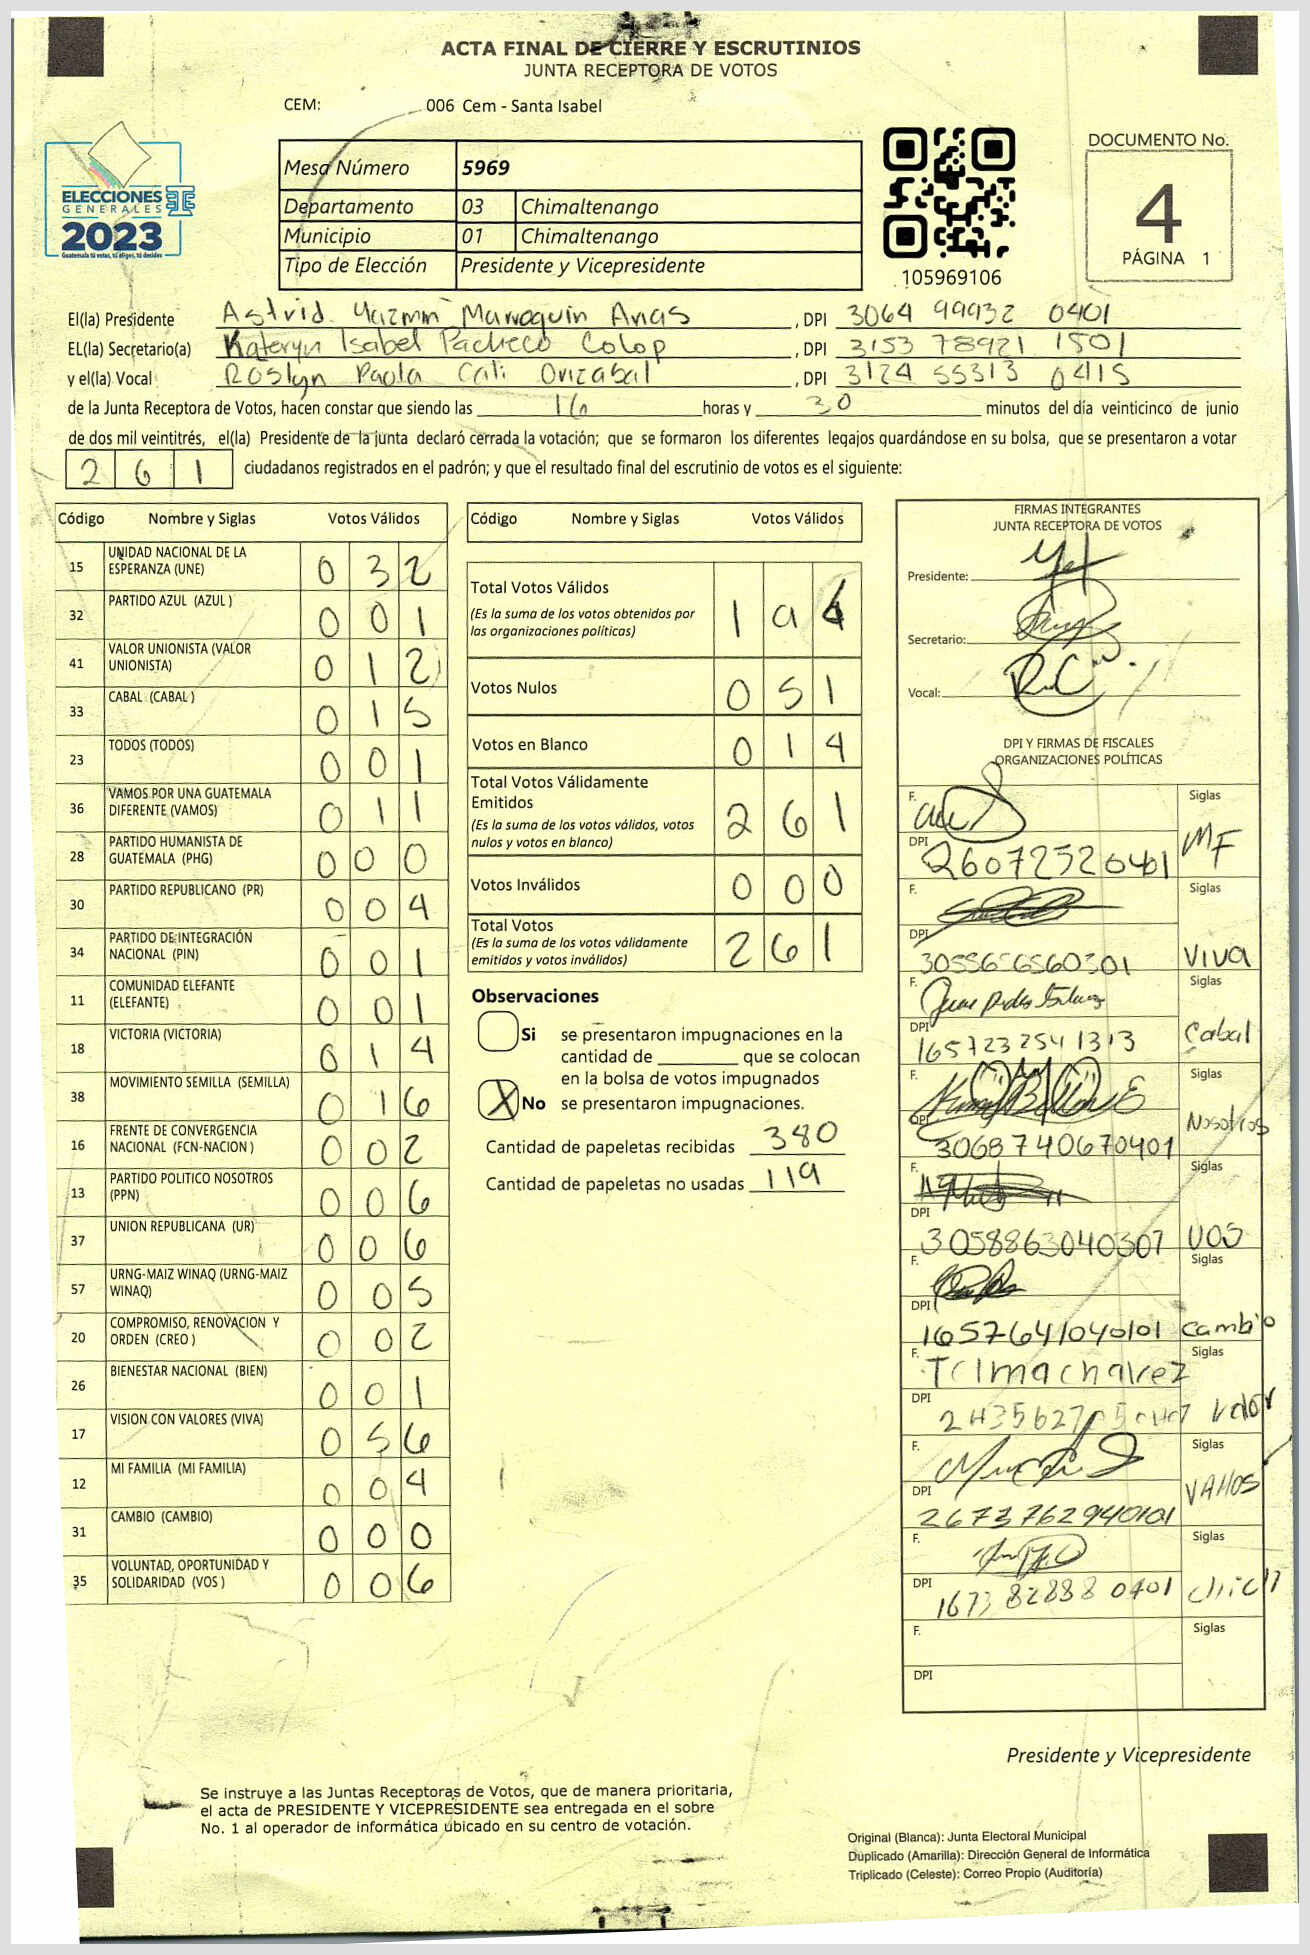 ACTA FINAL DE CIERRE Y ESCRUTINIOS
JUNTA RECEPTORA DE VOTOS
CEM: 006 Cem - Santa Isabel
ELECCIONES
GENERALES
2023
Guatemala tú votas, tú eliges, tú decides
Mesa Número 5969
Departamento 03 Chimaltenango
Municipio 01 Chimaltenango
Tipo de Elección Presidente y Vicepresidente
105969106
DOCUMENTO No.
4
PÁGINA 1
El(la) Presidente Astrid Yazmin Marroquin Arias, DPI 3064 99932 0401
EL(la) Secretario(a) Kateryn Isabel Pacheco Colop, DPI 3153 78921 1501
y el(la) Vocal Roslyn Paola Cali Orizabal, DPI 3124 55313 0415
de la Junta Receptora de Votos, hacen constar que siendo las 16 horas y 30 minutos del día veinticinco de junio
de dos mil veintitrés, el(la) Presidente de la junta declaró cerrada la votación; que se formaron los diferentes legajos guardándose en su bolsa, que se presentaron a votar
2 6 1 ciudadanos registrados en el padrón; y que el resultado final del escrutinio de votos es el siguiente:
Código Nombre y Siglas Votos Válidos
15 UNIDAD NACIONAL DE LA ESPERANZA (UNE) 0 3 2
32 PARTIDO AZUL (AZUL ) 0 0 1
41 VALOR UNIONISTA (VALOR UNIONISTA) 0 1 2
33 CABAL (CABAL ) 0 1 5
23 TODOS (TODOS) 0 0 1
36 VAMOS POR UNA GUATEMALA DIFERENTE (VAMOS) 0 1 1
28 PARTIDO HUMANISTA DE GUATEMALA (PHG) 0 0 0
30 PARTIDO REPUBLICANO (PR) 0 0 4
34 PARTIDO DE INTEGRACIÓN NACIONAL (PIN) 0 0 1
11 COMUNIDAD ELEFANTE (ELEFANTE) 0 0 1
18 VICTORIA (VICTORIA) 0 1 4
38 MOVIMIENTO SEMILLA (SEMILLA) 0 1 6
16 FRENTE DE CONVERGENCIA NACIONAL (FCN-NACION ) 0 0 2
13 PARTIDO POLITICO NOSOTROS (PPN) 0 0 6
37 UNION REPUBLICANA (UR) 0 0 6
57 URNG-MAIZ WINAQ (URNG-MAIZ WINAQ) 0 0 5
20 COMPROMISO, RENOVACION Y ORDEN (CREO ) 0 0 2
26 BIENESTAR NACIONAL (BIEN) 0 0 1
17 VISION CON VALORES (VIVA) 0 5 6
12 MI FAMILIA (MI FAMILIA) 0 0 4
31 CAMBIO (CAMBIO) 0 0 0
35 VOLUNTAD, OPORTUNIDAD Y SOLIDARIDAD (VOS ) 0 0 6
Código Nombre y Siglas Votos Válidos
Total Votos Válidos 1 9 6
(Es la suma de los votos obtenidos por
las organizaciones políticas)
Votos Nulos 0 5 1
Votos en Blanco 0 1 4
Total Votos Válidamente
Emitidos 2 6 1
(Es la suma de los votos válidos, votos
nulos y votos en blanco)
Votos Inválidos 0 0 0
Total Votos 2 6 1
(Es la suma de los votos válidamente
emitidos y votos inválidos)
Observaciones
Si se presentaron impugnaciones en la
cantidad de ________ que se colocan
en la bolsa de votos impugnados
X No se presentaron impugnaciones.
Cantidad de papeletas recibidas 380
Cantidad de papeletas no usadas 119
FIRMAS INTEGRANTES
JUNTA RECEPTORA DE VOTOS
Presidente:
Secretario:
Vocal:
DPI Y FIRMAS DE FISCALES
ORGANIZACIONES POLÍTICAS
F. Siglas
DPI 26072520401 MF
F. Siglas
DPI 3055656560301 VIVA
F. Siglas
DPI 1657232541313 Cabal
F. Siglas
DPI 3068740670401 Nosotros
F. Siglas
DPI 3058863040307 VOS
F. Siglas
DPI 1657641040101 cambio
F. Siglas
DPI valor
F. Siglas
DPI 2673762940101 VAMOS
F. Siglas
DPI 1673 82888 0401
F. Siglas
DPI
Presidente y Vicepresidente
Se instruye a las Juntas Receptoras de Votos, que de manera prioritaria,
el acta de PRESIDENTE Y VICEPRESIDENTE sea entregada en el sobre
No. 1 al operador de informática ubicado en su centro de votación.
Original (Blanca): Junta Electoral Municipal
Duplicado (Amarilla): Dirección General de Informática
Triplicado (Celeste): Correo Propio (Auditoría)